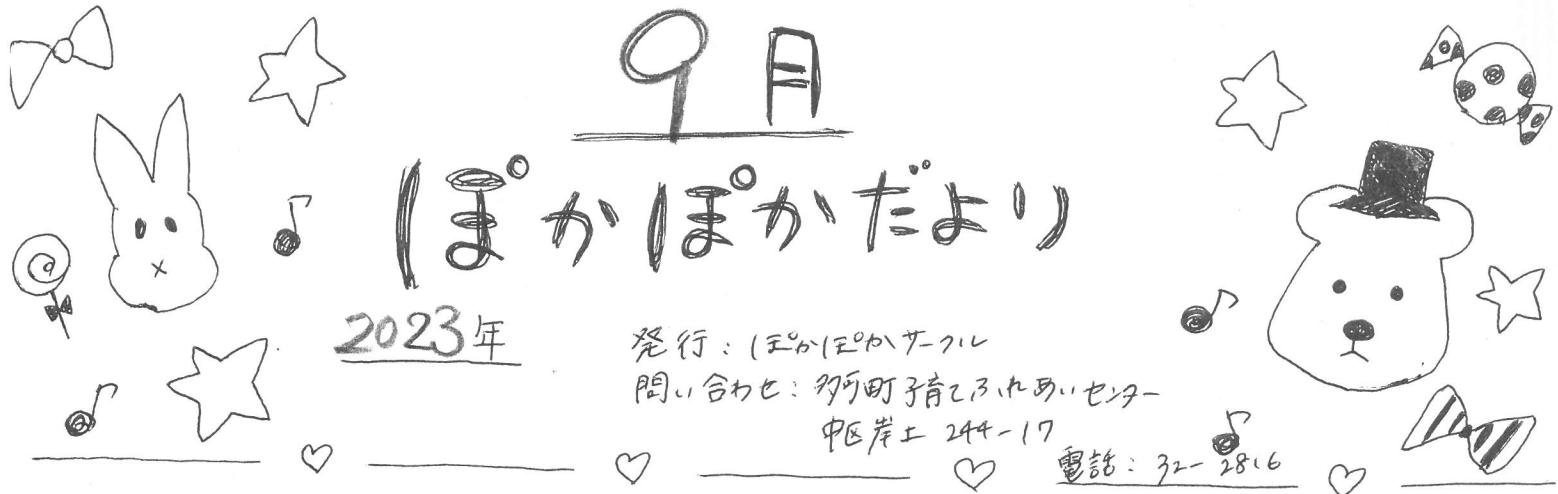 9月
ぽかぽかだより
2023年
発行：ぽかぽかサークル
問い合わせ：多可町子育てふれあいセンター
中区岸上 244-17
電話：32-2816